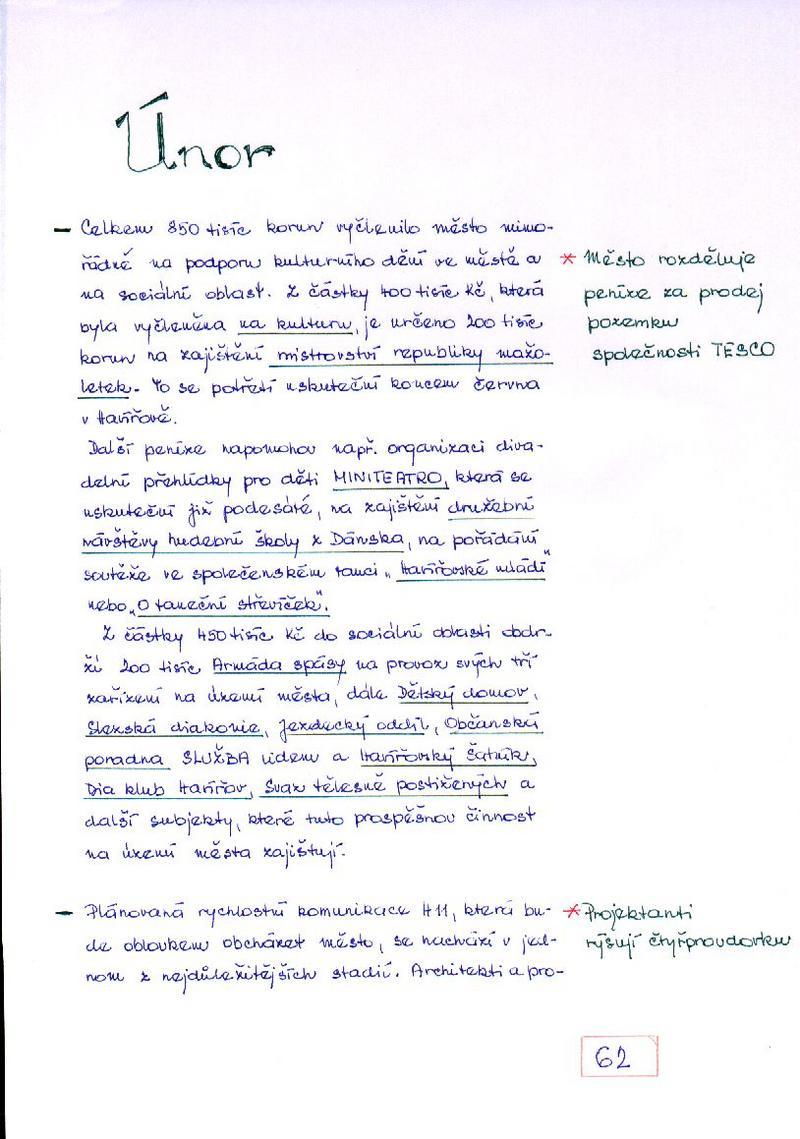 Únor
- Celkem 850 tisíc korun vyčlenilo město mimo-
řádně na podporu kulturního dění ve městě a
na sociální oblast. Z částky 400 tisíc Kč, která
byla vyčleněna na kulturu, je určeno 200 tisíc
korun na zajištění mistrovství republiky mažo-
letek. To se potřetí uskuteční koncem června
v Havířově.
* Město rozděluje
peníze za prodej
pozemku
společnosti TESCO
Další peníze napomohou např. organizaci diva-
delní přehlídky pro děti MINITEATRO, která se
uskuteční již podesáté, na zajištění družební
návštěvy hudební školy z Dánska, na pořádání
soutěže ve společenském tanci „Havířovské mládí"
nebo „O taneční střevíček".
Z částky 450 tisíc Kč do sociální oblasti obdr-
ží 200 tisíc Armáda spásy na provoz svých tří
zařízení na území města, dále Dětský domov,
Slezská diakonie, Jezdecký oddíl, Občanská
poradna SLUŽBA lidem a Havířovský Šatník,
Dia klub Havířov, Svaz tělesně postižených a
další subjekty, které tuto prospěšnou činnost
na území města zajištují.
- Plánovaná rychlostní komunikace H11, která bu-
de obloukem obcházet město, se nachází v jed-
nom z nejdůležitějších stadií. Architekti a pro-
* Projektanti
rýsují čtyřproudovku
62